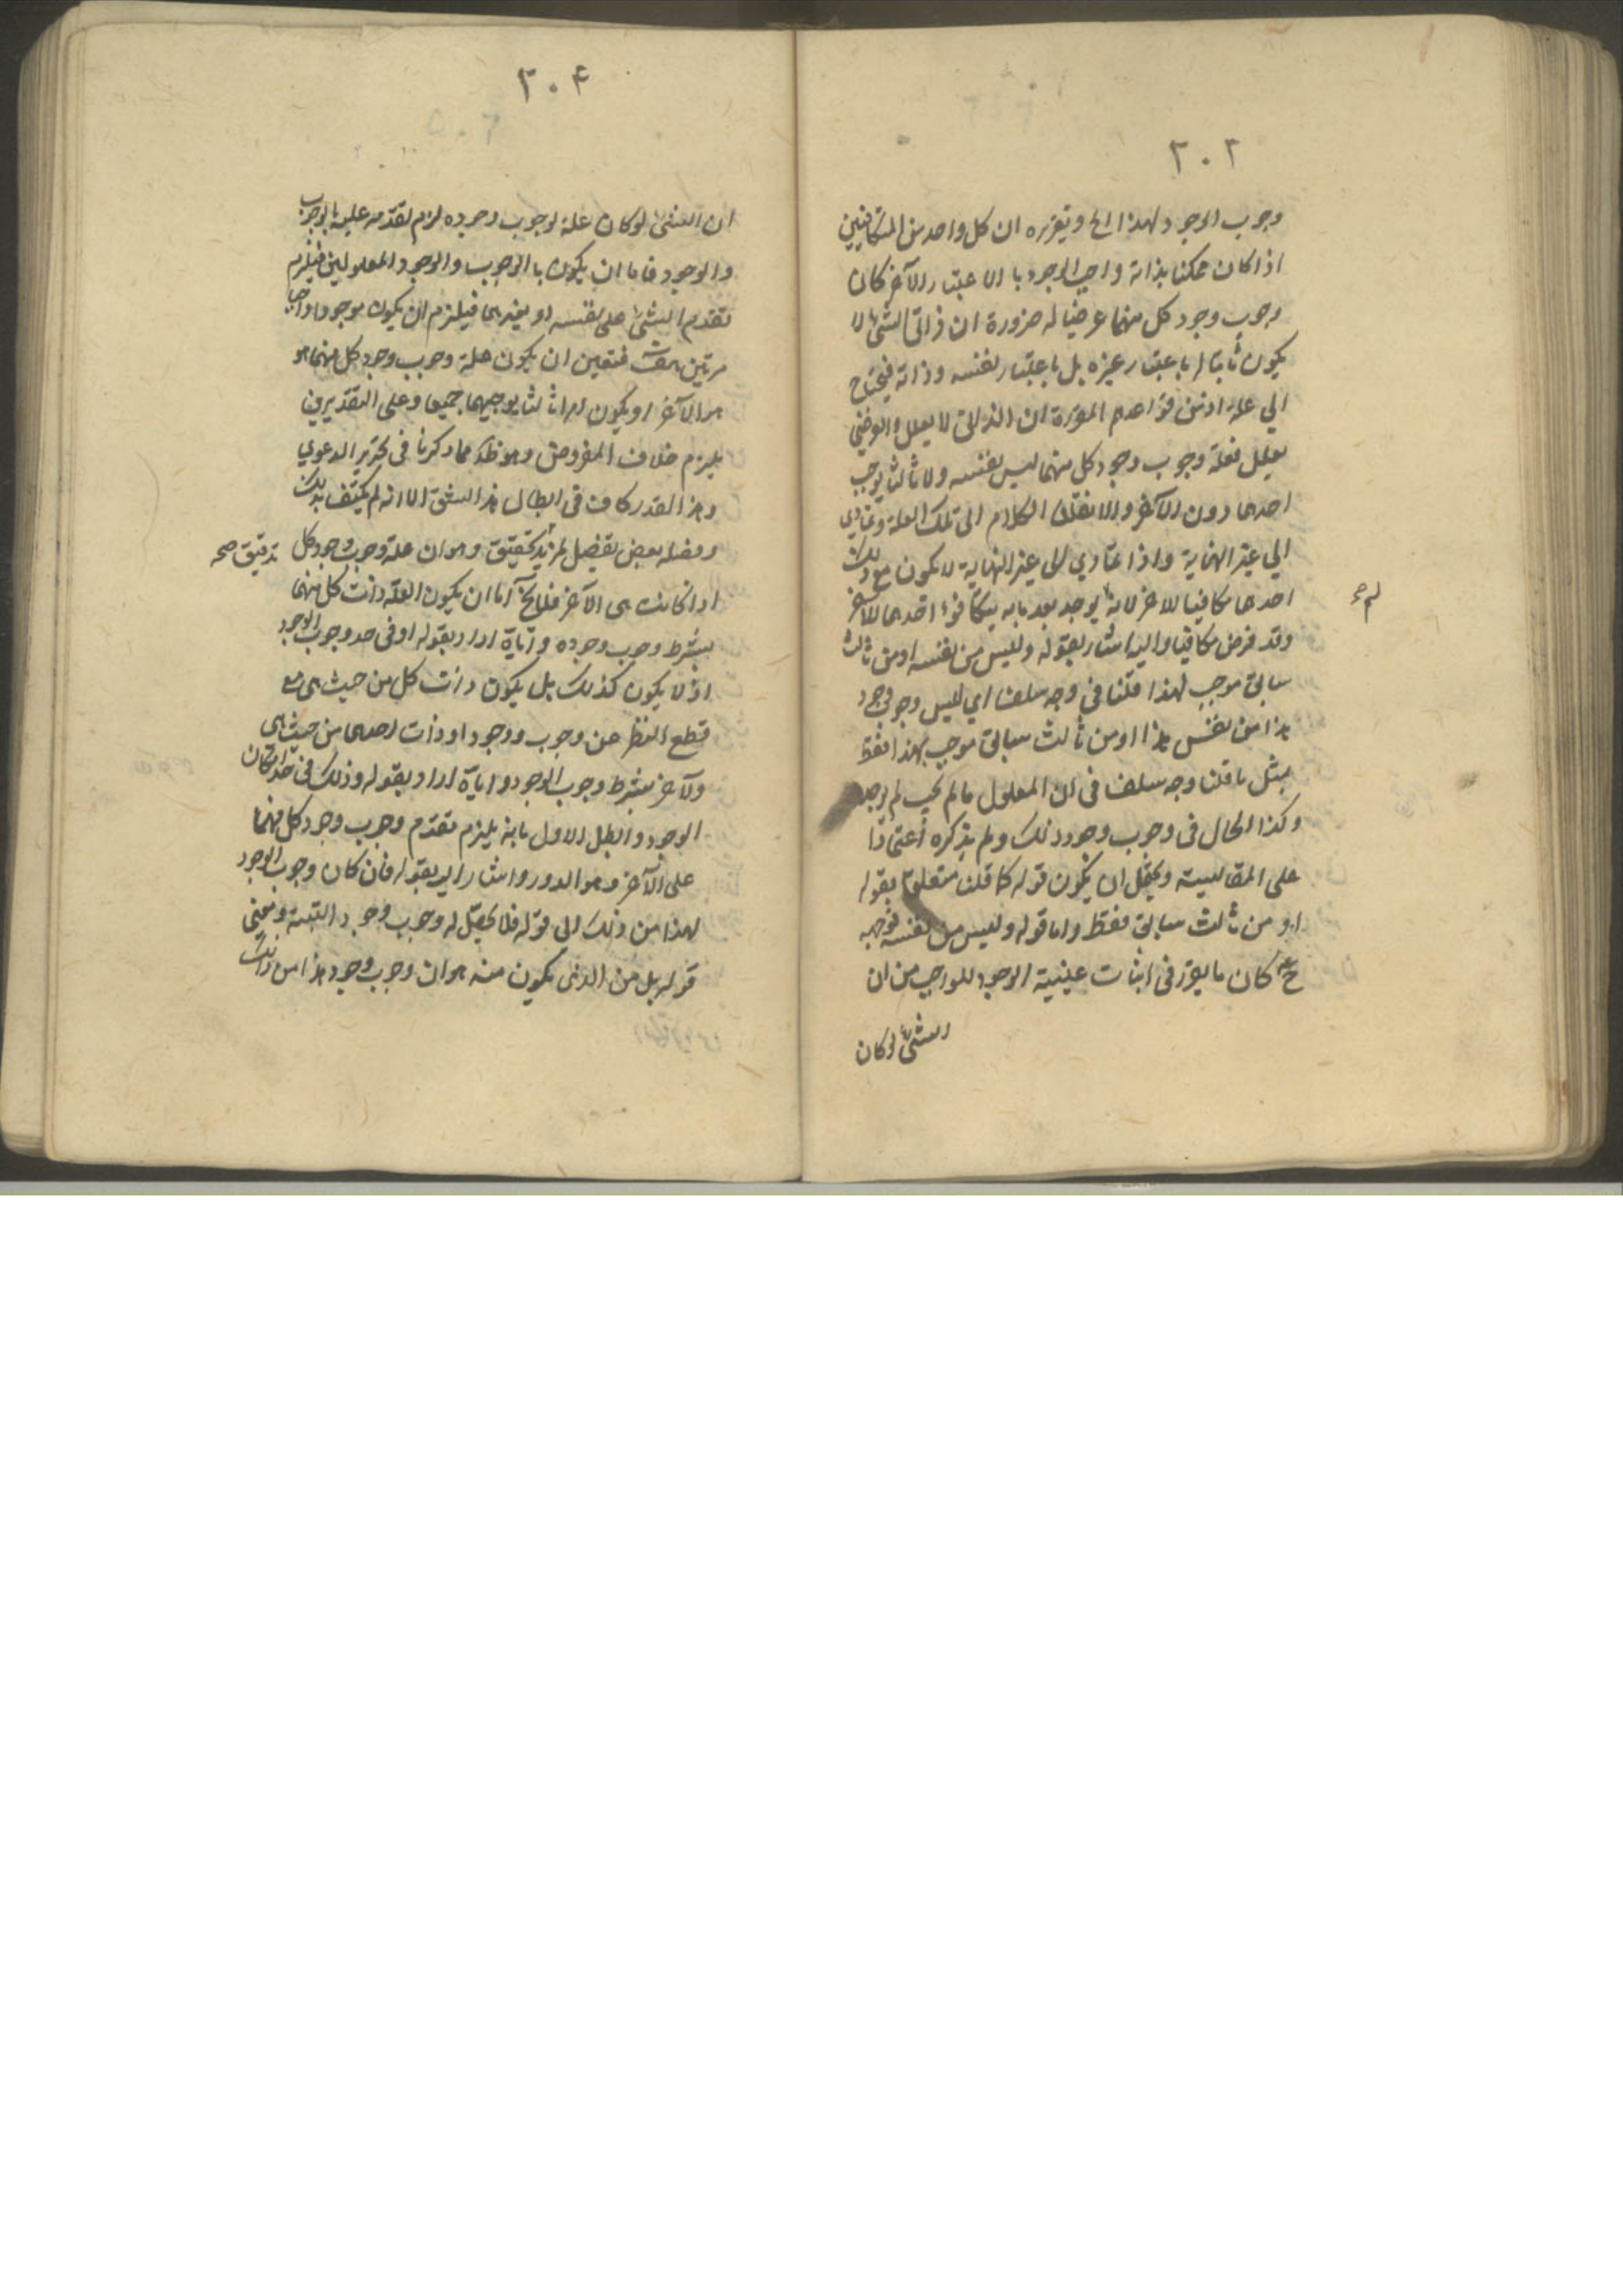 ٢٠٣
وجوب الوجود لهذا الخ وتقريره ان كل واحد من المتكافيين
اذا كان ممكنا بذاته واجب الوجود بالاعتبار الآخر كان
وجوب وجود كل منهما عرضيا له ضرورة ان ذاتي الشئ لا
يكون ثابتا له باعتبار غيره بل باعتبار نفسه وذاته فيحتاج
الي علة اذ من قواعدهم المقررة ان الذاتى لا يعلل والعرضي
يعلل فعلة وجوب وجود كل منهما ليس نفسه ولا ثالث يوجب
احدهما دون الآخر والا نقلنا الكلام الى تلك العلة وتمادي
الي غير النهاية واذا تمادي الى غير النهاية لا يكون مع ذلك
احدهما مكافيا للاخر لانه يوجد بعد ما به يتكافؤ احدهما للآخر
لم
وقد فرض مكافيا واليه اشار بقوله وليس من نفسه او من ثالث
سابق موجب لهذا قلنا فى وجه سلف اي ليس وجوب وجود
هذا من نفس هذا او من ثالث سابق موجب لهذا فقط
بمثل ما قلنا وجه سلف فى ان المعلول ما لم يجب لم يوجد
وكذا الحال فى وجوب وجود ذلك ولم يذكره اعتمادا
على المقايسة ويحتمل ان يكون قوله كما قلنا متعلقا بقوله
او من ثالث سابق فقط واما قوله وليس من نفسه فوجهه
ح كان ما يقرر فى اثبات عينية الوجود للواجب من ان
الشئ لو كان
٢٠۴
ان الشئ لو كان علة لوجوب وجوده لزم تقدمه عليه بالوجوب
والوجود فاما ان يكون بالوجوب والوجود المعلولين فيلزم
تقدم الشئ على نفسه او بغيرهما فيلزم ان يكون موجودا واجبا
مرتين هف فتعين ان يكون علة وجوب وجود كل منهما هو
هو الآخر او يكون امرا ثالثا يوجبهما جميعا وعلى التقديرين
يلزم خلاف المفروض وهو ظ مما ذكرنا فى تحرير الدعوي
وهذا القدر كاف فى ابطال هذا الشق الا انه لم يكتف بذلك
وفصله بعض تفصيل لمزيد تحقيق وهو ان علة وجوب وجود كل
تدقيق صح
اذا كانت هى الآخر فلا يخ اما ان يكون العلة ذات كل منهما
بشرط وجوب وجوده واياه اراد بقوله او فى حد وجوب الوجود
اذ لا يكون كذلك بل يكون ذات كل من حيث هى مع
قطع النظر عن وجوب ووجود او ذات احدهما من حيث هى
والآخر بشرط وجوب الوجود واياه اراد بقوله وذلك فى حد امكان
الوجود وابطل الاول بانه يلزم تقدم وجوب وجود كل منهما
على الآخر وهو الدور واشار اليه بقوله فان كان وجوب الوجود
لهذا من ذلك الى قوله فلا يحصل له وجوب وجود البتة ومعنى
قوله بل من الذى يكون منه هو ان وجوب وجود هذا من ذلك